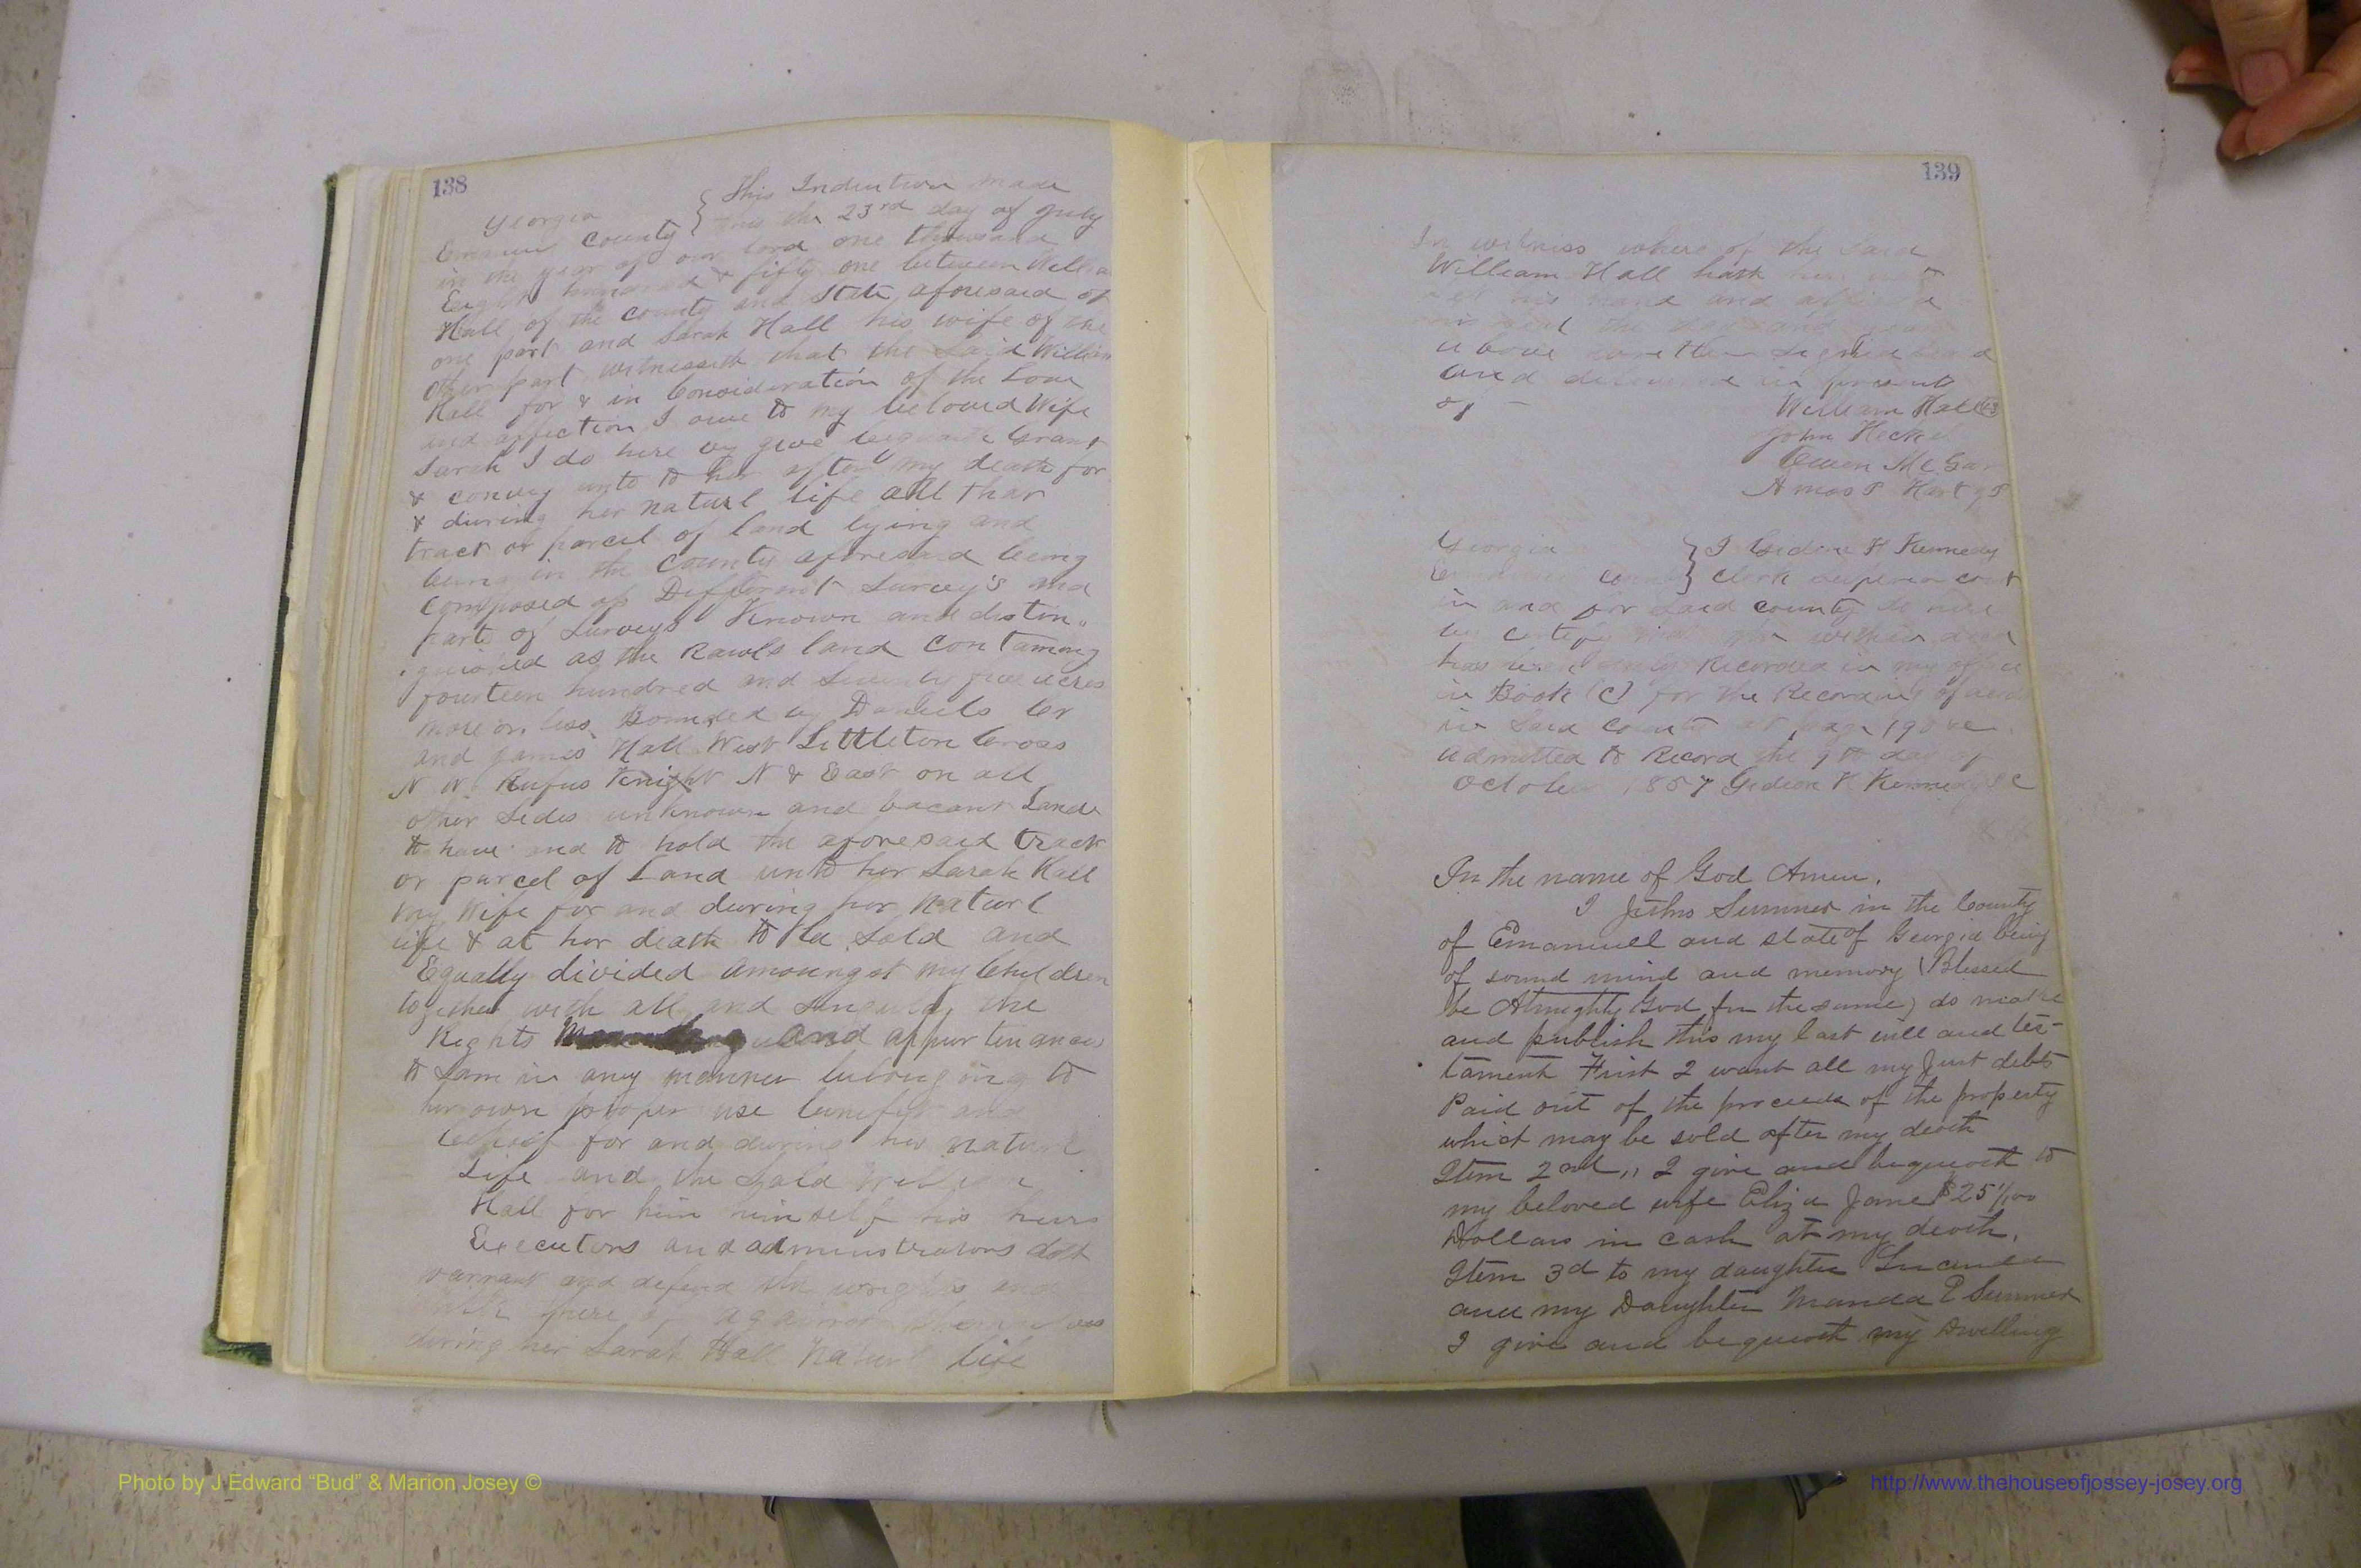 138
This Indenture made
Georgia
Emanuel County } this the 23rd day of July
in the year of our lord one thousand
Eight hundred & fifty one between William
Hall of the County and State aforesaid of
one part and Sarah Hall his wife of the
other part witnesseth that the said William
Hall for & in Consideration of the Love
and affection I owe to my beloved Wife
Sarah I do here by give bequeath Grant
& convey unto to her after my death for
& during her naturl life all that
tract or parcel of land lying and
being in the County aforesaid being
Composed of Different Survey's and
parts of Surveys Known and distin„
guished as the Rawls land Containing
fourteen hundred and Seventy five acres
more or less Bounded by Daniels Cr
and James Hall West Littleton Cross
N W Rufus Knight N & East on all
other Sides unknown and vacant Lands
to have and to hold the aforesaid tract
or parcel of Land unto her Sarah Hall
my Wife for and during her Naturl
life & at her death to be Sold and
Equally divided amoungst my Children
together with all and Singular the
Rights and appurtenances
to Same in any manner belonging to
her own proper use benefit and
behoof for and during her naturl
Life and the Said William
Hall for him himself his heirs
Executors and administrators doth
warrant and defend the wrights and
against themselves
during her Sarah Hall Naturl life
139
In witness where of the Said
William Hall hath
set his hand and affixed
his seal the day and year
above written Signed
and delivered in presents
of - William Hall
John
Amos
Georgia } I Gideon H Kennedy
County } Clerk Superior court
in and for Said county do here
by certify that the within deed
has been duly Recorded in my office
in Book (C) for the Recording of deeds
in Said County at page 190
admitted to Record the 9th day of
October 1857 Gideon H Kennedy S C
In the name of God Amen.
I Sumner in the County
of Emanuell and state of Georgia being
of sound mind and memory (Blessed
be Almighty God for the same) do make
and publish this my last will and tes-
tament First I want all my Just debts
Paid out of the proceeds of the property
which may be sold after my death
Item 2nd „ I give and bequeath to
my beloved wife Eliza Jane $25
Dollars in cash at my death.
Item 3d to my daughter
and my Daughter Manda E Sumner
I give and bequeath my Dwelling
Photo by J Edward “Bud” & Marion Josey ©
http://www.thehouseofjossey-josey.org